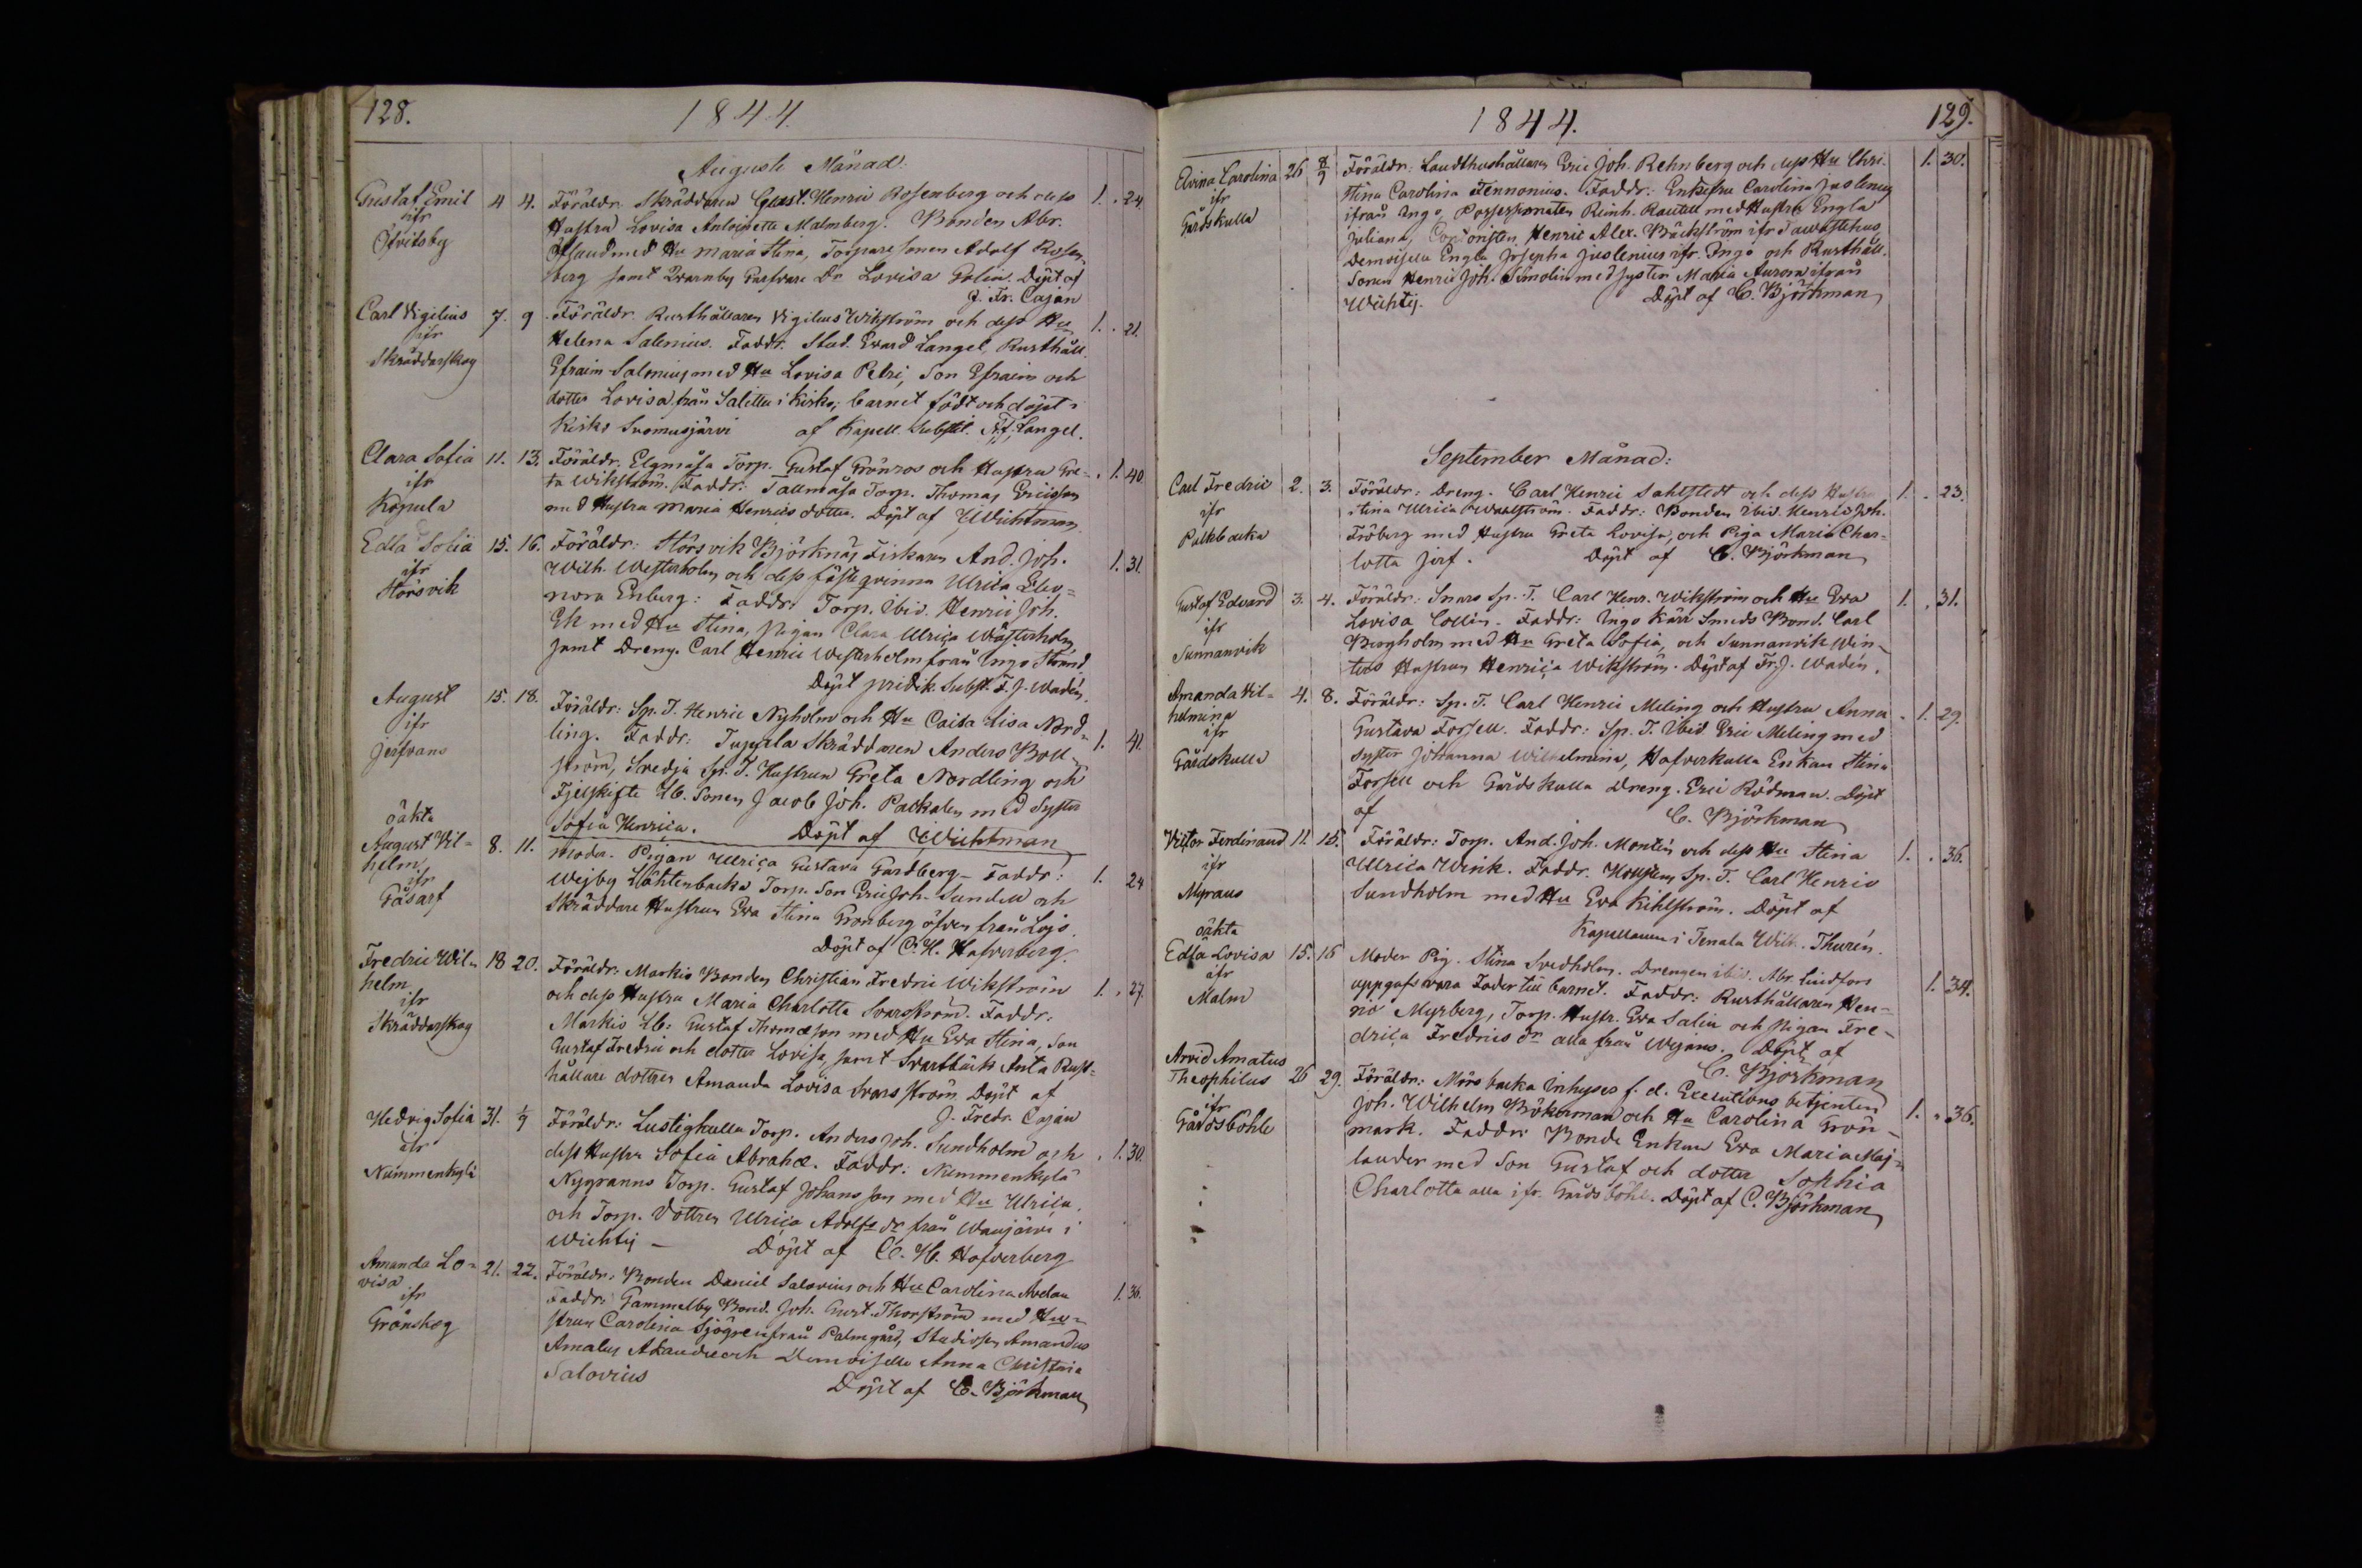 128.
1844.
Augusti Månad:
Gustaf Emil 4 4. Föräldr. Skräddaren Gust. Henric Rosenberg och dess 1. 24.
ifr Hustru Lovisa Antoinetta Malmberg. Bonden Abr.
Öfvitsby med Hu Maria Stina, Torpare sonen Adolf Rosen-
berg samt Qvarnby Dr Lovisa Döpt af
J. Fr. Cajan
Carl Vigilius 7. 9 Föräldr. Rusthållaren Vigilius Wikström och dess Hu 1. 21.
ifr Helena Salenius. Faddr. Stud. Evard Langel, Rusthåll.
Skräddarskog Efraim Salenius med Hu Lovisa Petri, Son Efraim och
dotter Lovisa från Salittu i Kisko; barnet född och döpt i
Kisko Suomusjärvi af Kapell. Substit. Langel.
Clara Sofia 11. 13. Föräldr. Elgmåsa Torp. Gustaf Grönroos och Hustru Gre- 1. 40
ifr ta Wikström. Faddr: Tallmåsa Torp. Thomas Ericsson
Kopula med Hustru Maria Henricsdotter. Döpt af Wichtman
Edla Sofia 15. 16. Föräldr: Störsvik Björknäs Fiskaren And. Joh. 1. 31.
ifr Wilh. Westerholm och dess fästeqvinna Ulrica Eleo-
Störsvik nora Enberg: Faddr: Torp. ibid. Henric Joh.
Ek med Hu Stina, pigan Clara Ulrica Westerholm
samt Dreng. Carl Henric Westerholm från Ingo Strand
Döpt predik. Subst. F. J. Wadén.
August 15. 18. Föräldr: Sp. T. Henric Nyholm och Hu Caisa Lisa Nord-
ifr ling. Faddr: Tuppala Skräddaren Anders Boll- 1. 41.
Jerfvans ström, Svedja Sp. T. Hustrun Greta Nordling och
Fjelskifte Hb. Sonen Jacob Joh. Packalen med Syster
oäkta Sofia Henrica. Döpt af Wichtman
August Vil- 8. 11. Moder. Pigan Ulrica Gustava Gardberg – Faddr: 1. 24
helm Wejby Torp. Son Eric Joh. Sundell och
ifr Skräddare Hustrun Eva Stina Gronberg öfven från Lojo.
Gåsarf Döpt af C. H. Hafverberg.
Fredric Wil- 18 20. Föräldr: Markis Bonden Christian Fredric Wikström
helm och dess Hustru Maria Charlotta Svarström. Faddr: 1. 27.
ifr Markis Hb: Gustaf Thomasson med Hu Eva Stina, Son
Skräddarskog Gustaf Fredric och dotter Lovisa samt Svartbäck Anta Rust-
hållare dottren Amanda Lovisa Svarsström. Döpt af
J. Fredr. Cajan
Hedvig Sofia 31. 1/9 Föräldr: Lustigkulla Torp. Anders Joh. Sundholm och
ifr dess Hustru Sofia Abrahæ. Faddr: Nummenkylä 1. 30.
Nummenkylä Nygranns Torp. Gustaf Johansson med Hu Ulrica,
och Torp. dottren Ulrica Adolfs dr från Wanjärvi i
Wichtis – Döpt af C. H. Hafverberg
Amanda Lo- 21. 22. Föräldr: Bonden Daniel Salovius och Hu Carolina Avelan 1. 36.
visa Faddr: Gammelby Bond. Joh. Gust. Thorström med Hu-
ifr strun Carolina Sjögren från Palmgård, Studiosen Amandus
Grönskog Amalus och Demoiselle Anna Christina
Salovius Döpt af C. Björkman
1844.
129.
Elvina Carolina 26 8/9 Föräldr: Landthushållaren Eric Joh. Rehnberg och dess Hu Chri- 1. 30.
ifr stina Carolina Fennonius. Faddr: Enkefru Carolina Juslenius
Gårdskulla ifrån Ingo, Possessionaten Reinh. Rautell med Hustru Engla
Juliana, Henric Alex. Bäckström ifr Tawastehus,
Demoiselle Engla Josepha Juslenius ifr Ingo och Rusthåll.
Sonen Henric Joh. Simolin med syster Maria Aurora ifrån
Wichtis. Döpt af C. Björkman
September Månad:
Carl Fredric 2. 3. Föräldr: Dreng. Carl Henric Sahlstedt och dess Hustru 1. 23.
ifr Stina Ulrica Wahlström. Faddr: Bonden ibid. Henric Joh.
Palkbacka Fröberg med Hustru Greta Lovisa, och Piga Maria Char-
lotta Jerf. Döpt af C. Björkman
Gustaf Edvard 3. 4. Föräldr: Snars Sp. T. Carl Henr. Wikström och Hu Eva 1. 31.
ifr Lovisa Collin. Faddr: Ingo Kärr Smeds Bond. Carl
Sunnanvik Borgholm med Hu Greta Sofia, och Sunnanvik Win-
ters Hustrun Henrica Wikström. Döpt af Fr. J. Wadén.
Amanda Vil- 4. 8. Föräldr: Sp. T. Carl Henric Meling och Hustru Anna 1. 29.
helmina Gustava Forsell. Faddr: Sp. T. ibid. Eric Meling med
ifr syster Johanna Wilhelmina, Hafverkulla Enkan Stina
Gårdskulla Forsell och Gårdskulla Dreng. Eric Rödman. Döpt
af C. Björkman
Victor Ferdinand 11. 15. Föräldr: Torp. And. Joh. Montén och dess Hu Stina 1. 36.
ifr Ulrica Wink. Faddr. Sp. T. Carl Henric
Myrans Sundholm med Hu Eva Kihlström. Döpt af
oäkta Kapellanen i Tenala Wilh. Thurén.
Edla Lovisa 15. 16 Moder Pig. Stina Svedholm. Drengen ibid. Abr. Lindfors
ifr uppgafs vara Fader till barnet. Faddr: Rusthållaren Hen- 1. 34.
Malm ric Myrberg, Torp. Hustr. Eva Salin och pigan Fre-
drica Fredrics dr alla från Wejans. Döpt af
C. Björkman
Arvid Amatus
Theophilus 26 29. Föräldr: Mörsbacka Inhyses f. d. Executions betjenten
ifr Joh. Wilhelm Bökerman och Hu Carolina Grön- 1. 36.
Gårdsböhle mark. Faddr: Bonde Enkan Eva Maria Maj-
lander med Son Gustaf och dotter Sophia
Charlotta alla ifr. Gårdsböhle. Döpt af C. Björkman